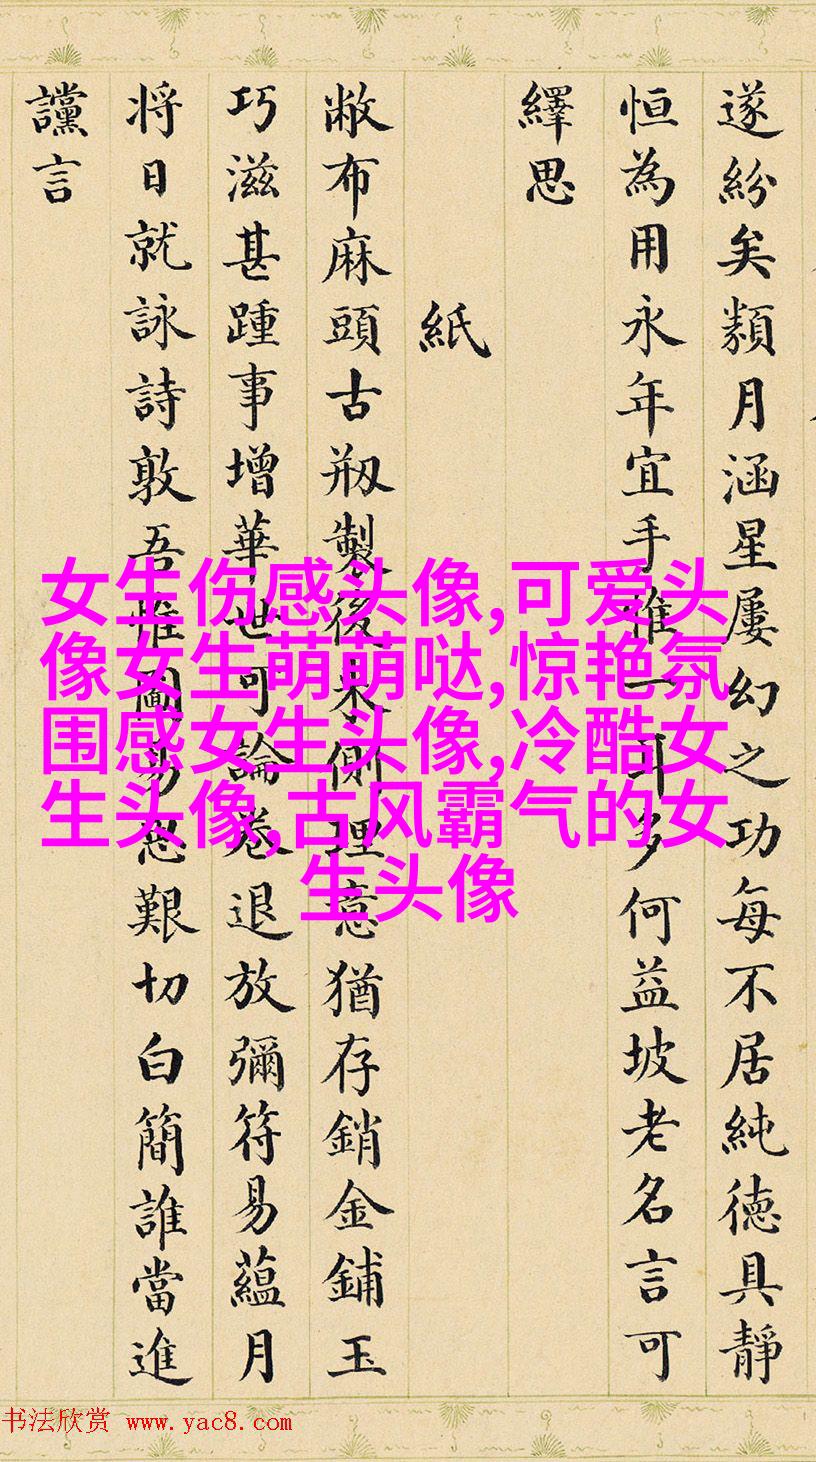 遂紛矣纇月涵星屢幻之功每不居純德具靜
恒為用永年宜手惟一耳多何益坡老名言可
繹思
紙
敝布麻頭古剏製後來側理意猶存銷金鋪玉
巧滋甚踵事增華世可論卷退放彌符易蘊月
將日就詠詩敦吾惟圖易思艱切白簡誰當進
讜言
女生伤感头像,可爱头
像女生萌萌哒,惊艳氛
围感女生头像,冷酷女
生头像,古风霸气的女
生头像
书法欣赏 www.yac8.com